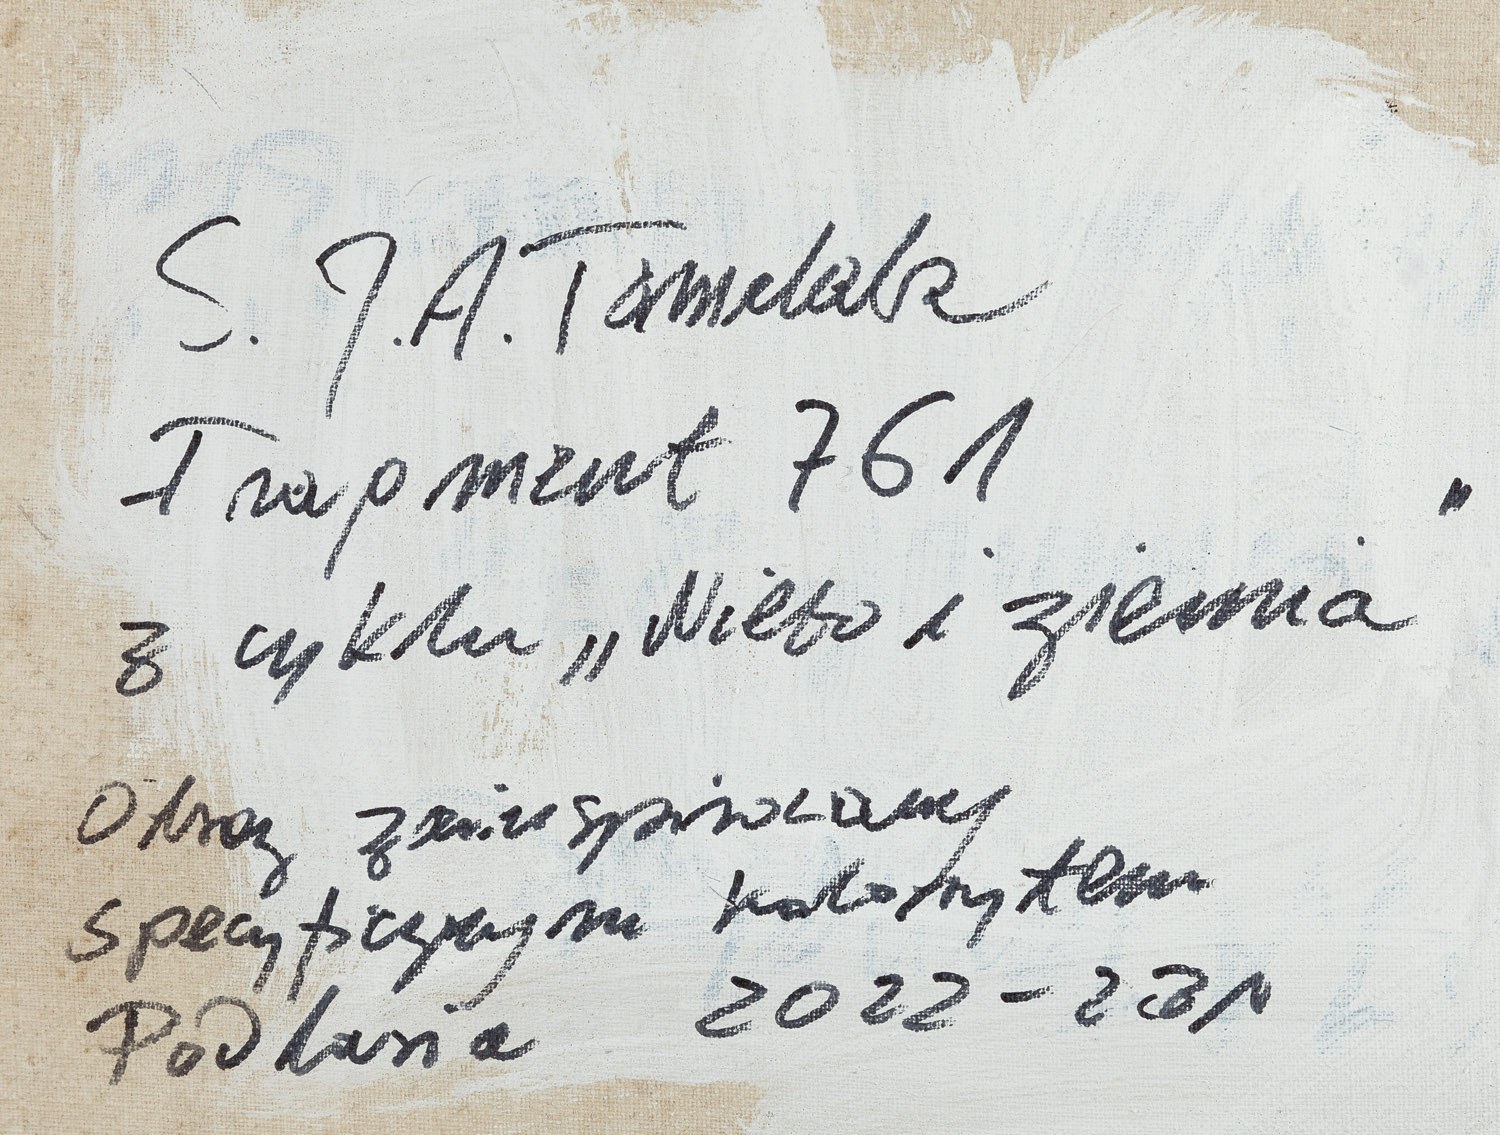 S. J. A. Tamulak
Fragment 761
z cyklu „Niebo i ziemia"
Obraz zainspirowany
specyficznym kolorytem
Podlasia 2022-23r